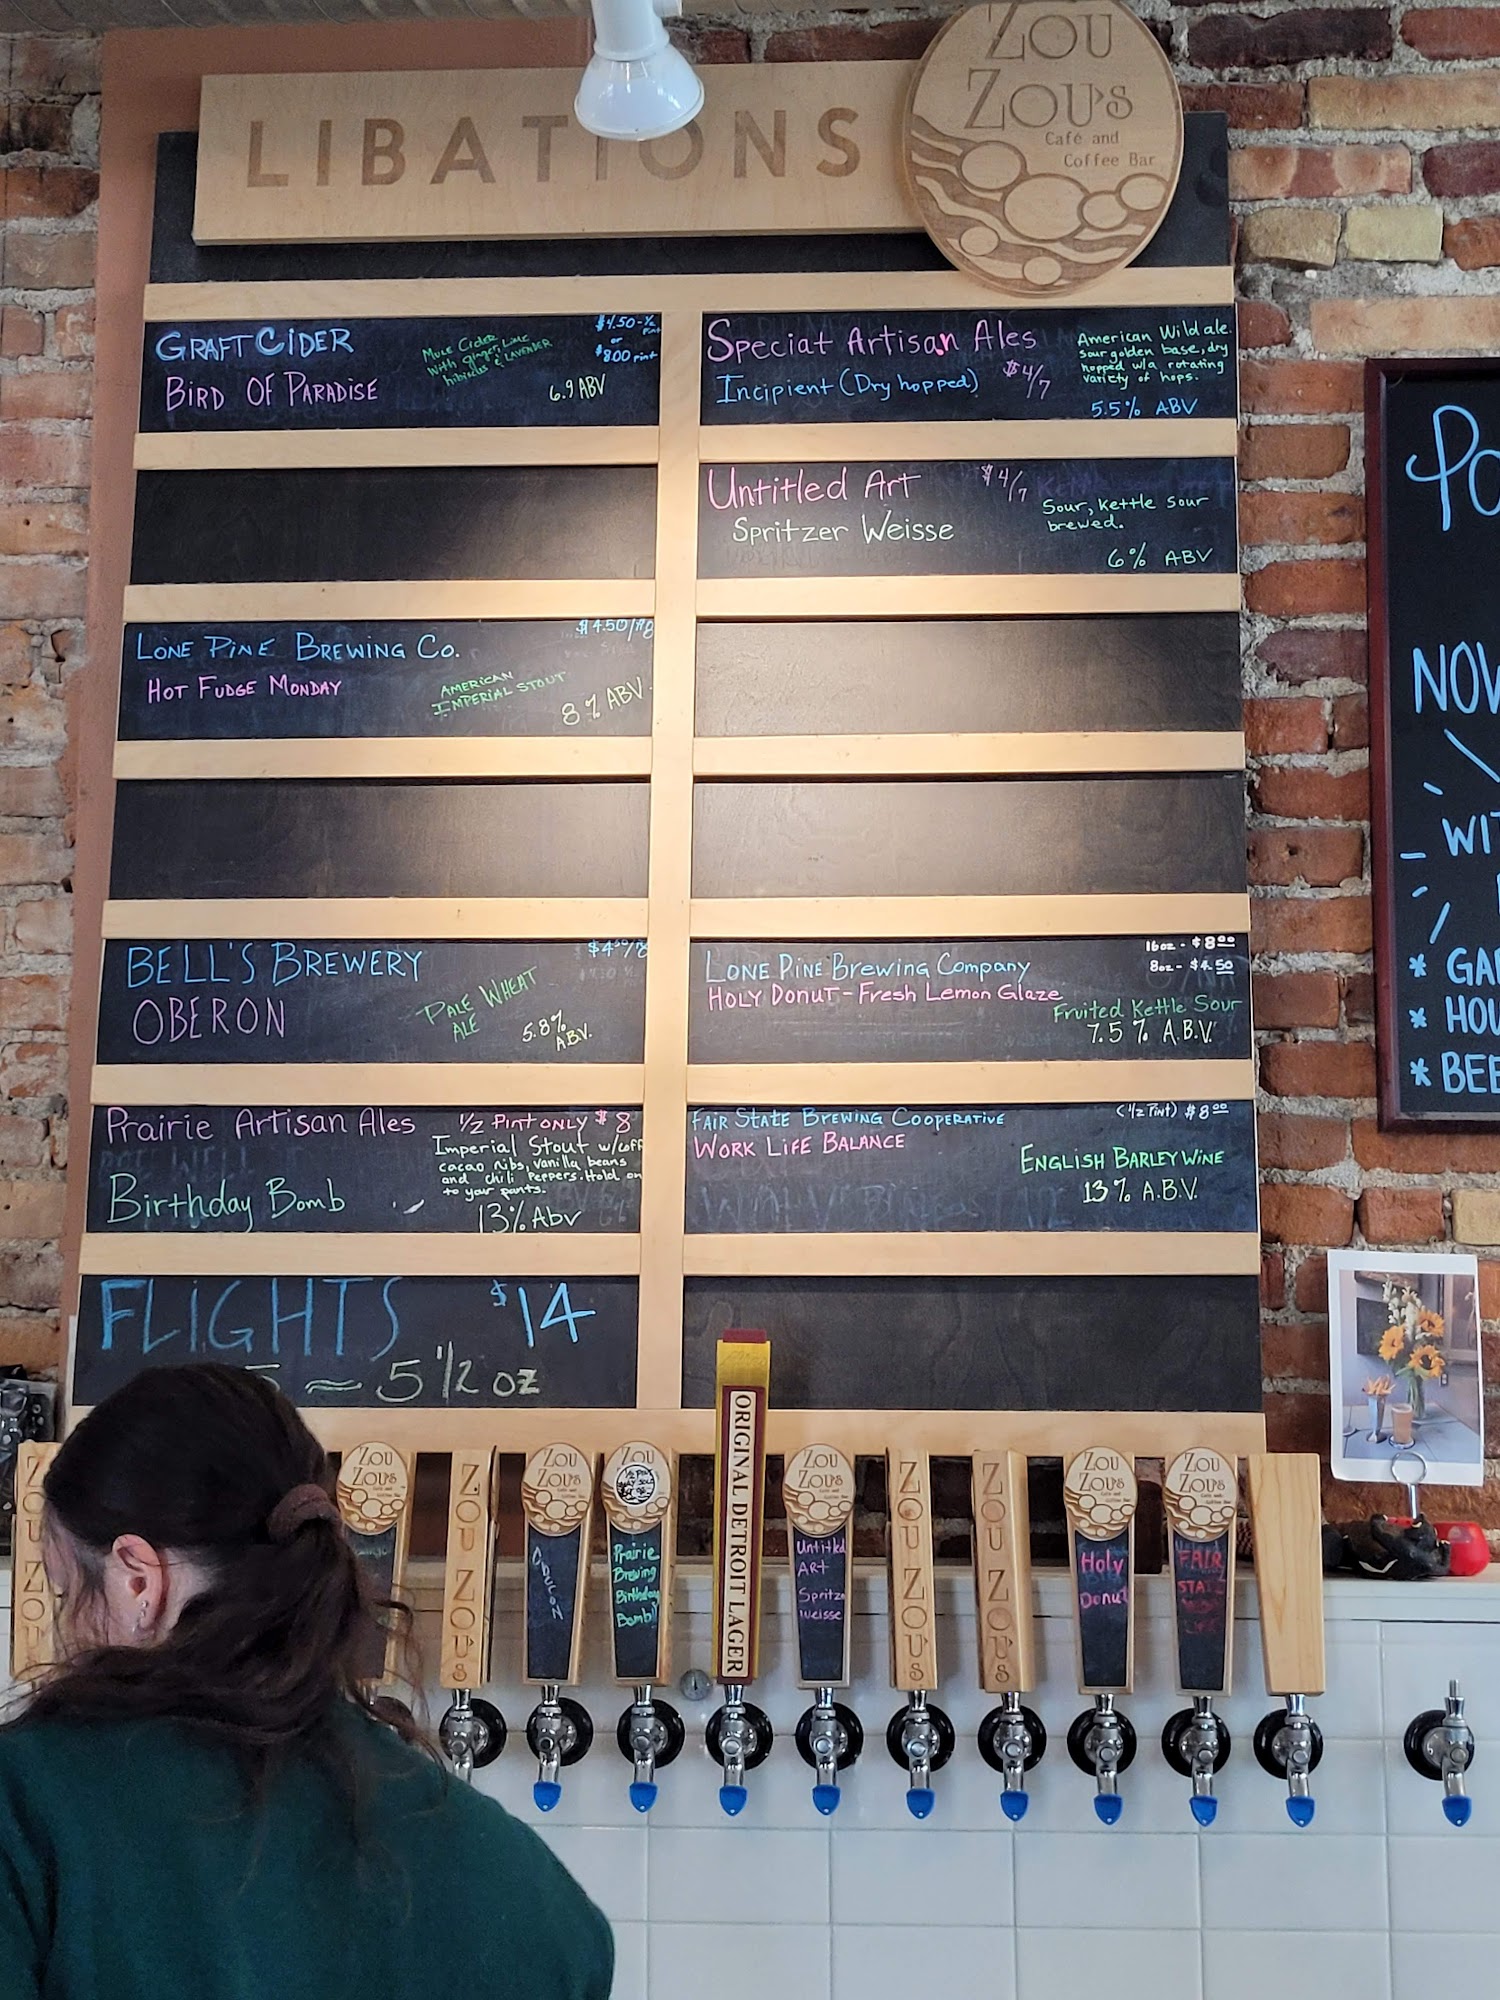 LIBATIONS
ZOU
ZOU'S
Café and
Coffee Bar
GRAFT CIDER
BIRD OF PARADISE
Mule Cider
with ginger, Lime
hibiscus & LAVENDER
$4.50 - ½
Pint
or
$8.00 pint
6.9 ABV
Speciat Artisan Ales
Incipient (Dry hopped)
$4/7
American Wild ale.
Sour golden base, dry
hopped w/a rotating
variety of hops.
5.5% ABV
Untitled Art
Spritzer Weisse
$4/7
Sour, kettle sour
brewed.
6% ABV
LONE PINE BREWING CO.
HOT FUDGE MONDAY
$4.50/
AMERICAN
IMPERIAL STOUT
8% ABV
BELL'S BREWERY
OBERON
$4.50/8
PALE WHEAT
ALE
5.8%
A.B.V.
LONE PINE Brewing Company
HOLY DONUT - Fresh Lemon Glaze
16oz - $8.00
8oz - $4.50
Fruited Kettle Sour
7.5 % A.B.V.
Prairie Artisan Ales
Birthday Bomb
1/2 Pint ONLY $8
Imperial Stout w/coff
cacao nibs, vanilla beans
and chili Peppers. Hold on
to your pants.
13% Abv
FAIR STATE BREWING COOPERATIVE
WORK LIFE BALANCE
(1/2 Pint) $8.00
ENGLISH BARLEY WINE
13% A.B.V.
FLIGHTS $14
5 ~ 5 1/2 oz
NOW
WIT
* GA
* HOU
* BEE
ZOU ZOU'S
ZOU
ZOU'S
Café and
Coffee Bar
ZOU ZOU'S
ZOU
ZOU'S
Café and
Coffee Bar
Oberon
ZOU
Prairie
Brewing
Birthday
Bomb!
ORIGINAL DETROIT LAGER
ZOU
ZOU'S
Untitled
ART
Spritze
Weisse
ZOU ZOU'S
ZOU ZOU'S
ZOU
ZOU'S
Holy
Donut
ZOU
ZOU'S
FAIR
STATE